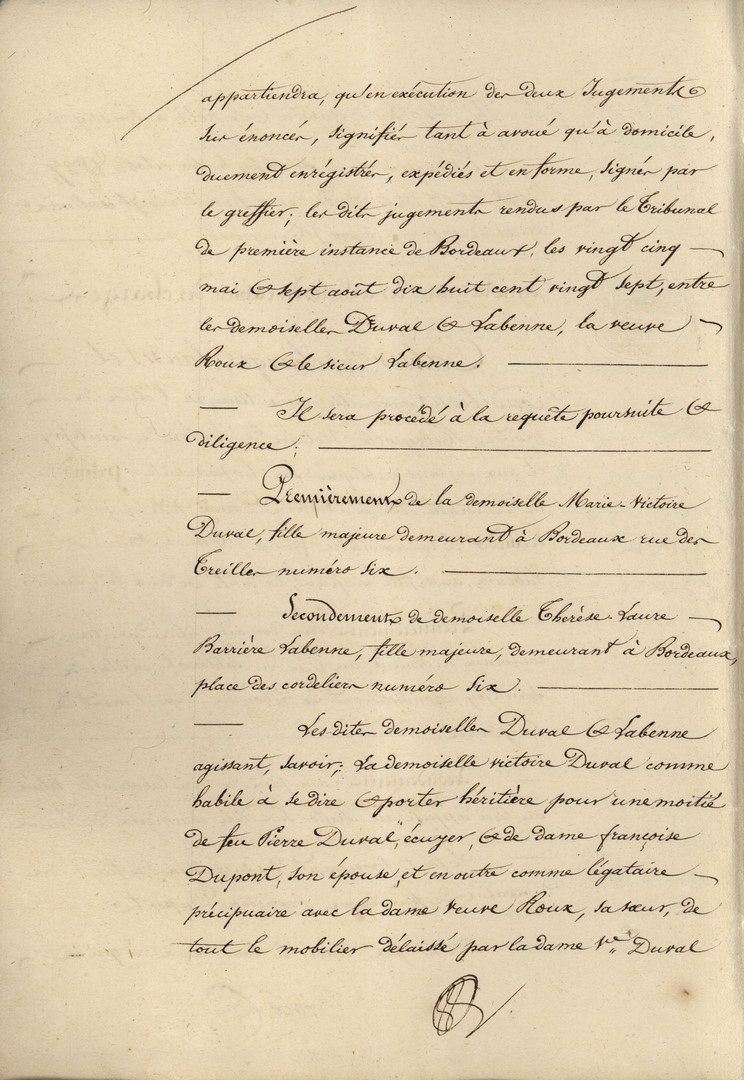 appartiendra, qu'en exécution des deux Jugements
sus énoncés, signifiés tant à avoué qu'à domicile,
duement enrégistrés, expédiés et en forme, signés par
le greffier; les dits jugements rendus par le Tribunal
de première instance de Bordeaux, les vingt cinq
mai & sept août dix huit cent vingt sept, entre
les demoiselles Duval & Labenne, la veuve
Roux & le sieur Labenne.
Il sera procédé à la requête poursuite &
diligence;
Premièrement de la demoiselle Marie-Victoire
Duval, fille majeure demeurant à Bordeaux rue des
Treilles numéro six.
Secondement de demoiselle Thérèse-Laure
Barrière Labenne, fille majeure, demeurant à Bordeaux,
place des cordeliers numéro six.
Les dites demoiselles Duval & Labenne
agissant, savoir; La demoiselle victoire Duval comme
habile à se dire & porter héritière pour une moitié
de feu Pierre Duval, écuyer, & de dame françoise
Dupont, son épouse, et en outre comme légataire
précipuaire avec la dame veuve Roux, sa sœur, de
tout le mobilier délaissé par la dame Ve. Duval